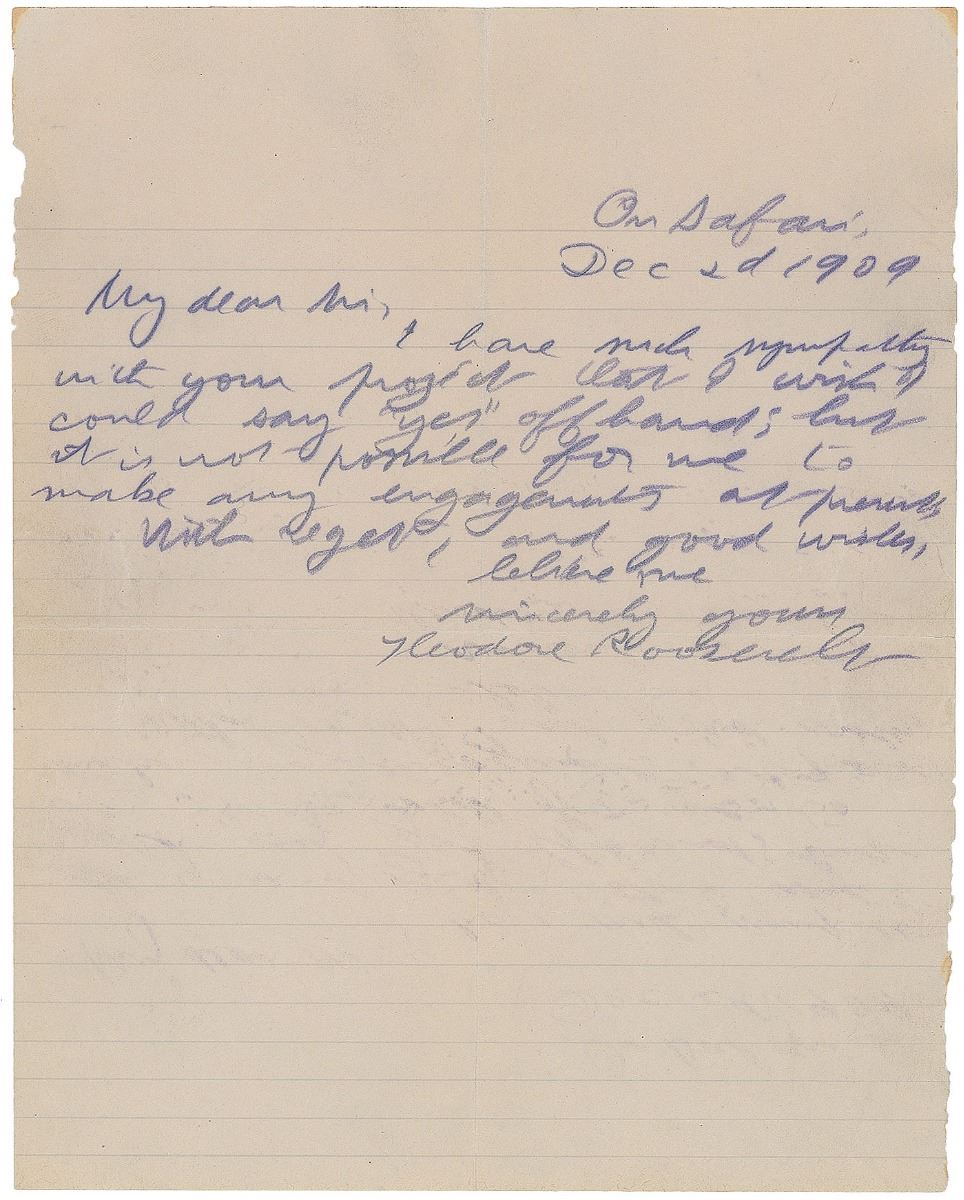 On Safari,
Dec 2d 1909
My dear Sir,
I have such sympathy
with your project that I wish I
could say "yes" offhand; but
it is not possible for me to
make any engagements at present.
With regret, and good wishes,
believe me
sincerely yours
Theodore Roosevelt